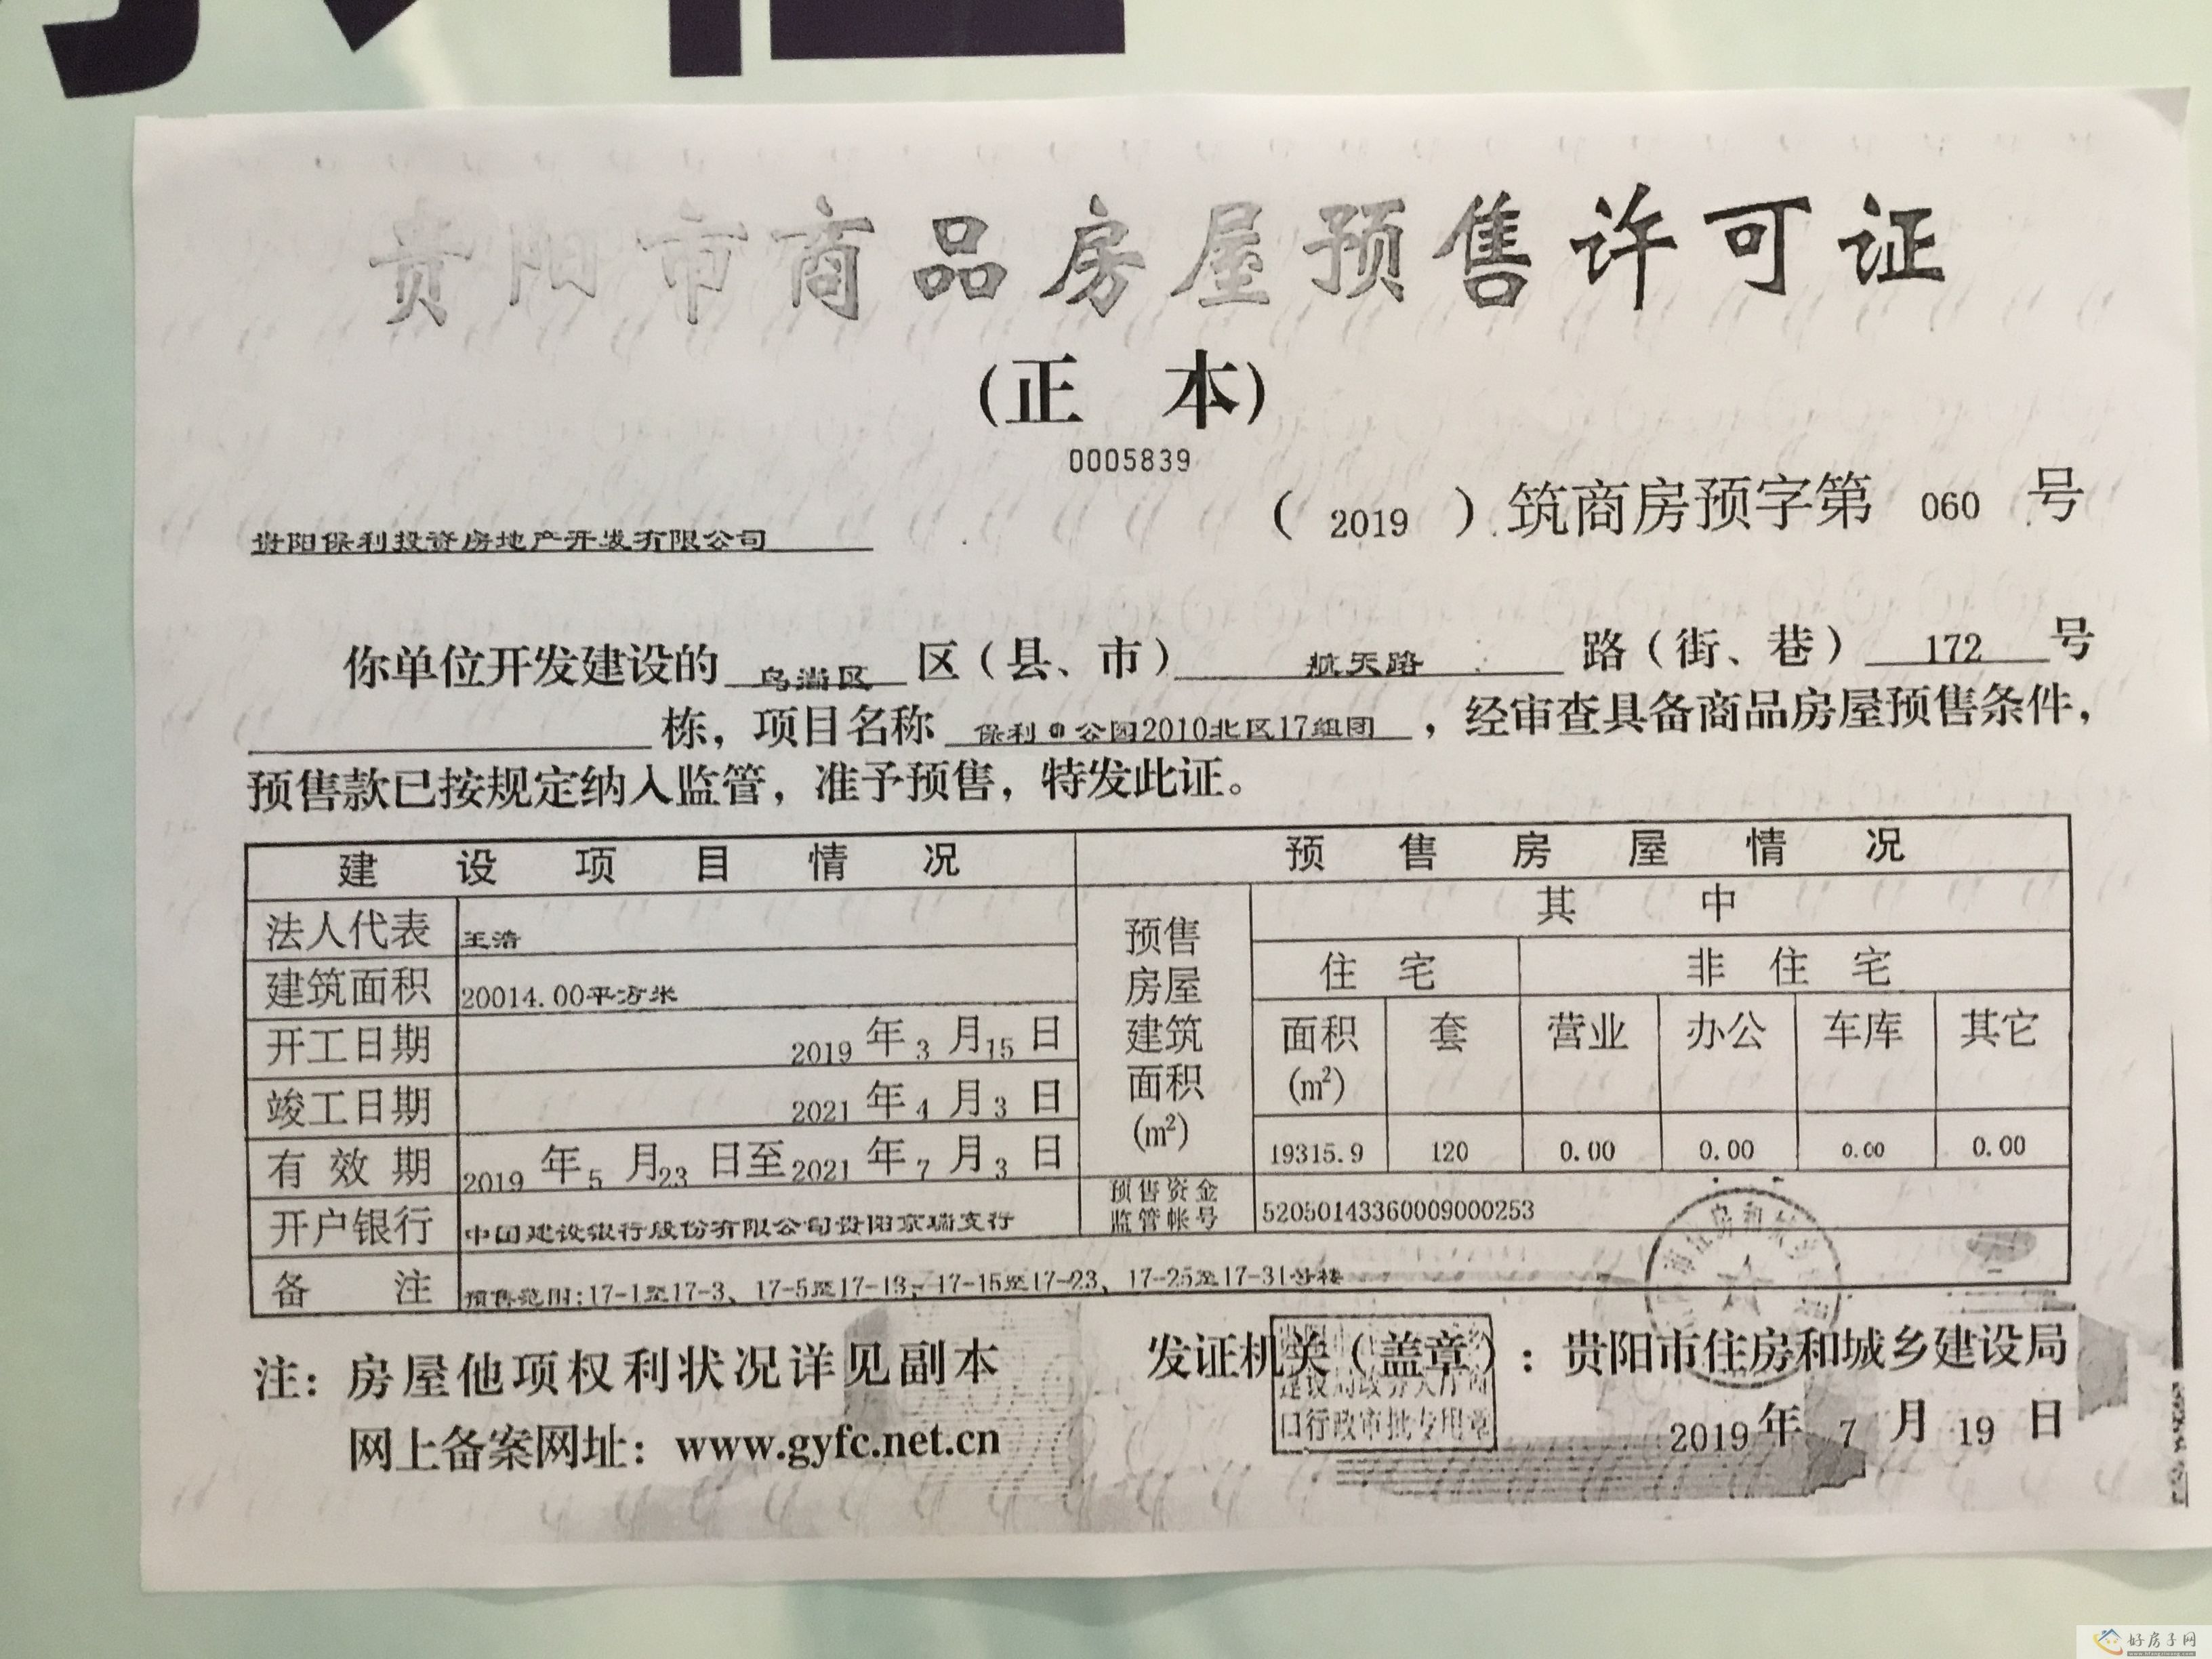 贵阳市商品房屋预售许可证
(正 本)
0005839
(2019).筑商房预字第 060 号
贵阳保利投资房地产开发有限公司
你单位开发建设的 乌当区 区(县、市) 航天路 路(街、巷) 172 号
栋,项目名称 保利●公园2010北区17组团 ,经审查具备商品房屋预售条件,
预售款已按规定纳入监管,准予预售,特发此证。
建设项目情况 预售房屋情况
法人代表 王浩
建筑面积 20014.00平方米
开工日期 2019年3月15日
竣工日期 2021年4月3日
有效期 2019年5月23日至2021年7月3日
开户银行 中国建设银行股份有限公司贵阳京瑞支行
预售房屋建筑面积(m²) 其中
住宅 非住宅
面积(m²) 套 营业 办公 车库 其它
19315.9 120 0.00 0.00 0.00 0.00
预售资金监管帐号 52050143360009000253
备注 预售范围:17-1至17-3、17-5至17-13、17-15至17-23、17-25至17-31号楼
注:房屋他项权利状况详见副本
网上备案网址:www.gyfc.net.cn
发证机关(盖章):贵阳市住房和城乡建设局
建设局政务大厅窗
口行政审批专用章
2019年7月19日
好房子网